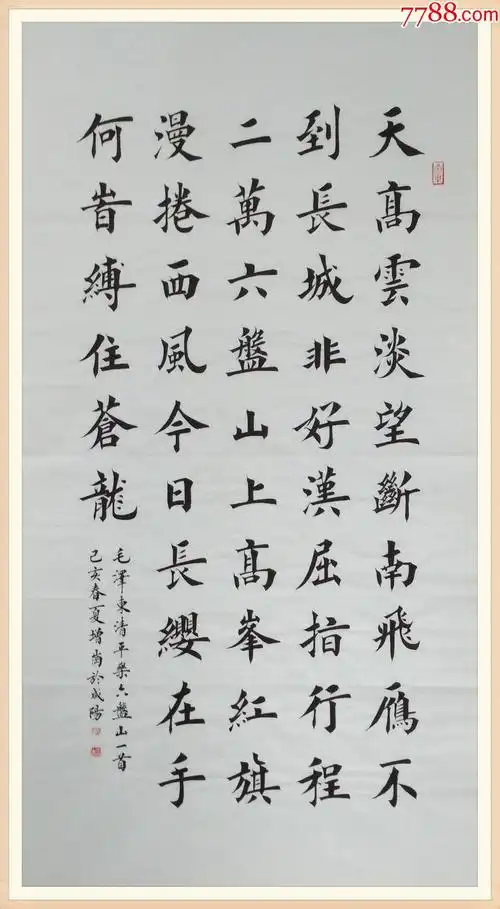 7788.com
天髙雲淡望斷南飛鴈不
到長城非好漢屈指行程
二萬六盤山上髙峯紅旗
漫捲西風今日長纓在手
何旹縛住蒼龍
毛澤東清平樂六盤山一首
己亥春夏增尚於咸陽